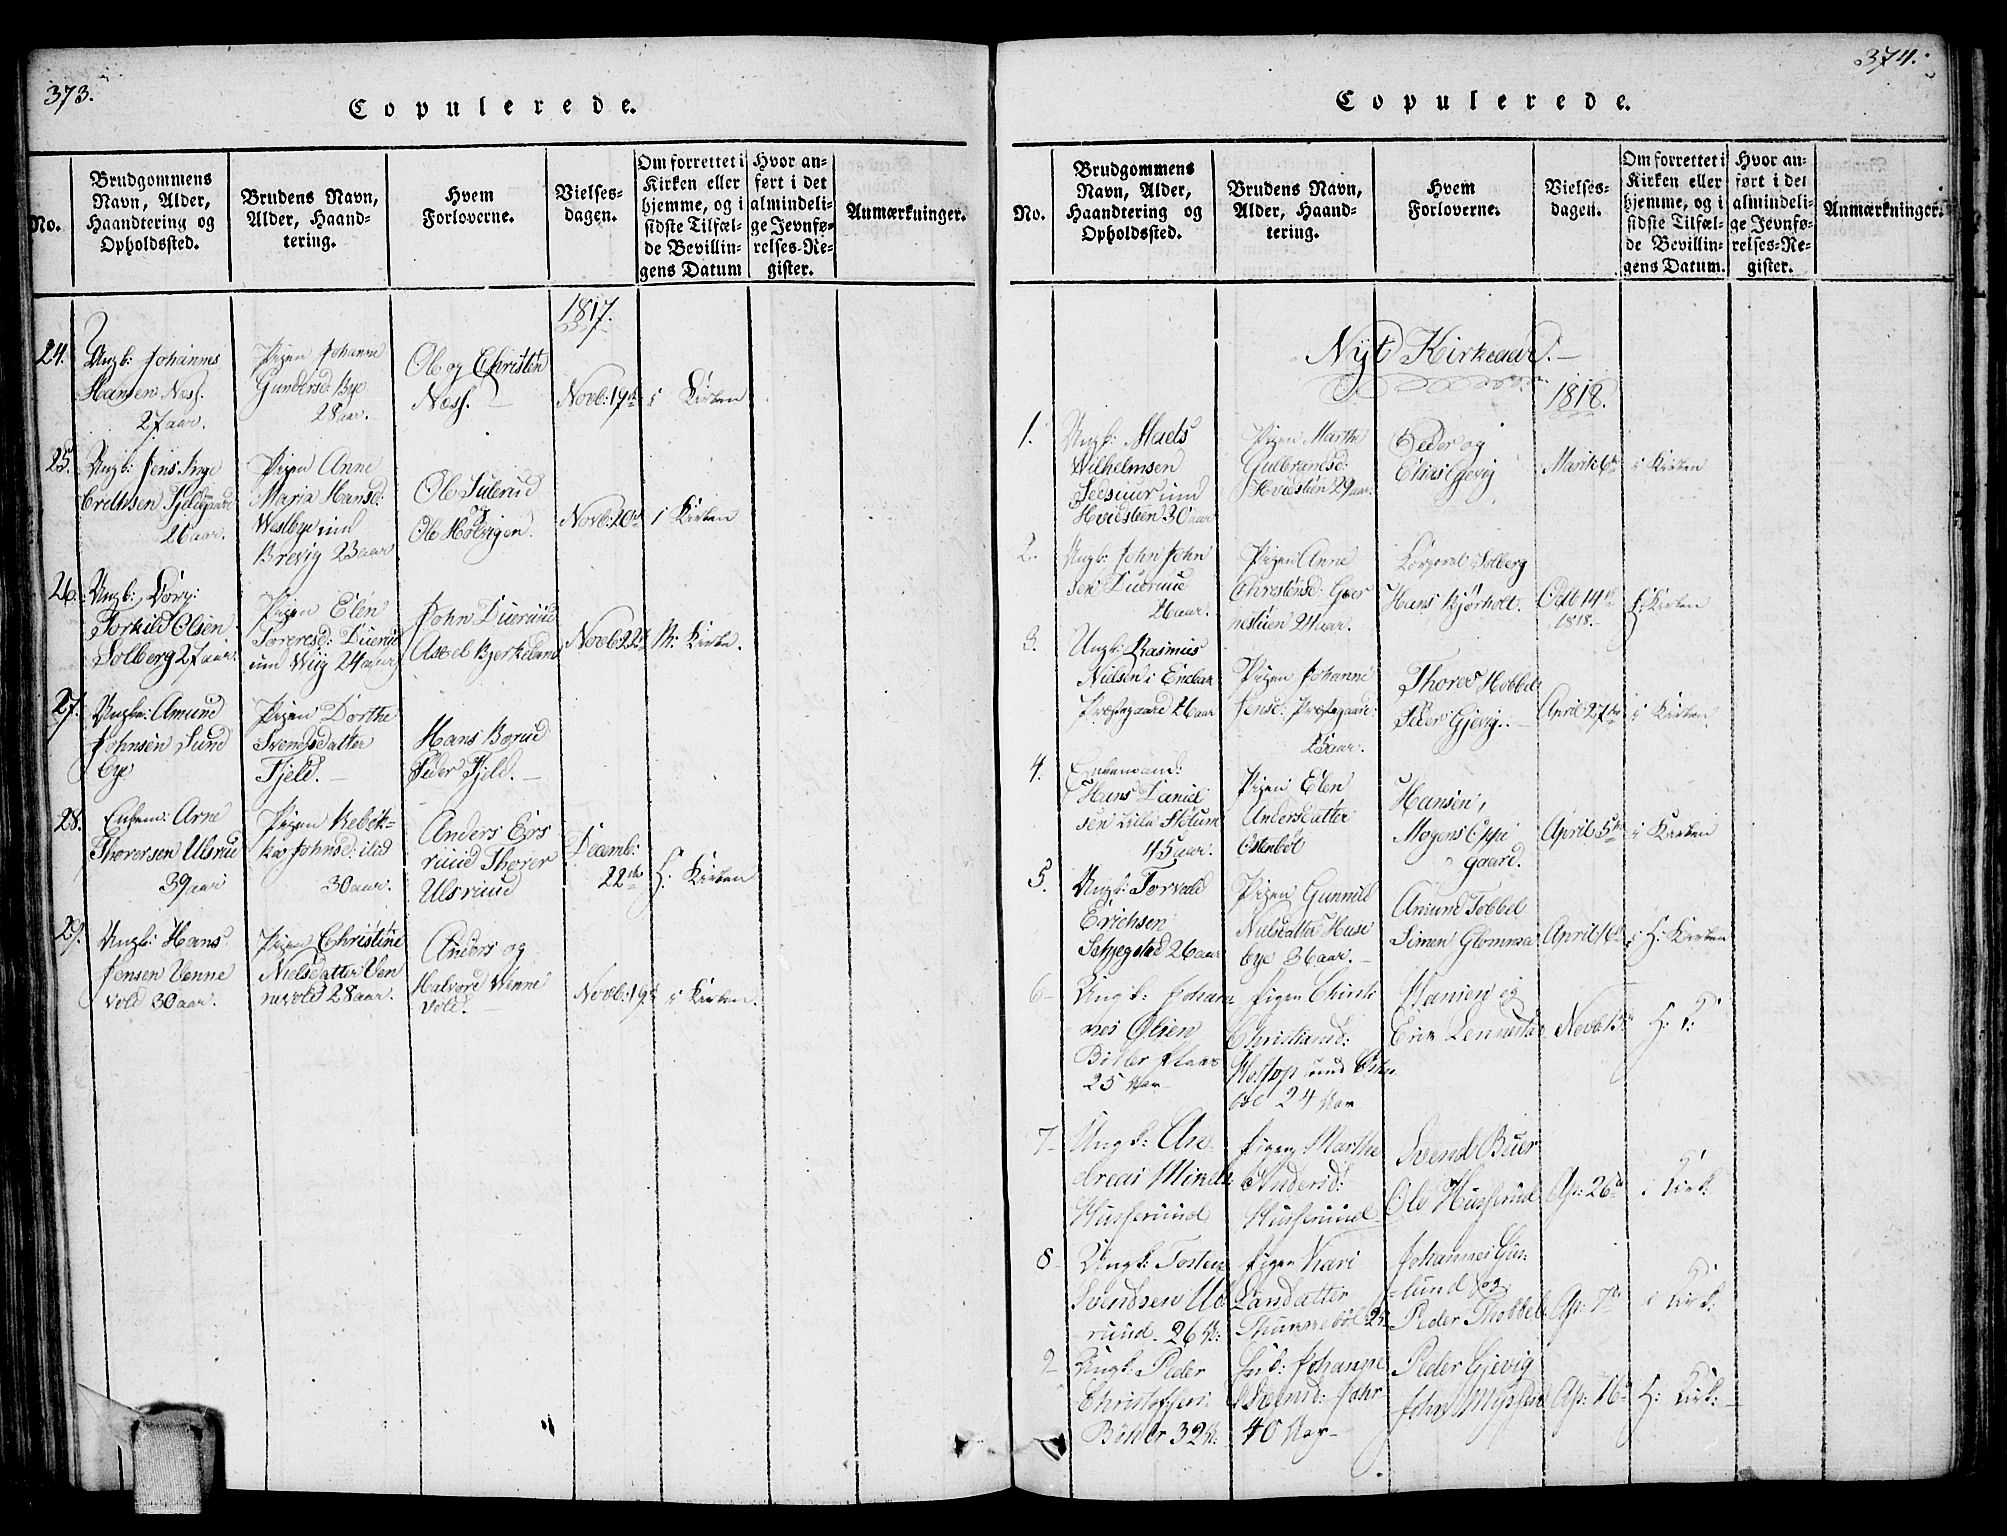 373.
Copulerede.
No.
Brudgommens Navn, Alder, Haandtering og Opholdssted.
Brudens Navn, Alder, Haandtering.
Hvem Forloverne.
Vielsesdagen.
Om forrettet i Kirken eller hjemme, og i sidste Tilfælde Bevillingens Datum
Hvor anført i det almindelige Jevnførelses-Register.
Anmærkninger.
1817.
24. Ungk: Johannes
Hansen Næss.
27 aar.
Pigen Johanne
Gundersd: Bye
28 aar.
Ole og Christen
Næss. —
Novb: 19de
i Kirken
25. Ungk: Jens Inge
brethsen
26 aar.
Pigen Anne
Maria Hansd:
Westbye um
Brevig 23 aar
Ole Sulerud
Ole
Novb: 20de
i Kirken
26. Ungk: Dorg:
Torkild Olsen
Solberg 27 aar.
Pigen Elen
Toreresd: Duerud
um Wiig 24 aar
John Duerud
Axel Bjerkeland
Novb: 22de
M: Kirke.
27. Ungk: Amund
Johnsen Sund
bye
Pigen Dorthe
Svendsdatter
Fjeld. —
Hans Borud
Peder Fjeld. —
28. Enkem: Arne
Thorersen Ulsrud
39 aar
Pigen Rebek-
ka Johnsd: ibid
30 aar.
Anders Eps
ruud Thorer
Ulsruud
Decemb:
22de
H. Kirken
29. Ungk: Hans
Jensen Venne
vold 30 aar.
Pigen Christine
Nielsdatter Ven
nevold 28 aar.
Anders og
Halvord Wenne
vold. —
Novb: 19de
i Kirken.
374.
Copulerede.
No.
Brudgommens Navn, Alder, Haandtering og Opholdssted.
Brudens Navn, Alder, Haandtering.
Hvem Forloverne.
Vielsesdagen.
Om forrettet i Kirken eller hjemme, og i sidste Tilfælde Bevillingens Datum.
Hvor anført i det almindelige Jevnførelses-Register.
Anmærkninger.
Nyt Kirkeaar. —
1818.
1. Ungk: Mads
Wilhelmsen
um
Hvidsteen 30 aar
Pigen Marthe
Gulbrandsd:
Hvidsteen 29 aar.
Peder og
Elias Gjevig
6te
i Kirken
2. Ungk: John John
sen Duerud
26 aar.
Pigen Anne
Christensd:
24 aar.
Solberg
Hans Bjørholt.
14de
1818. —
H: Kirken
3. Ungk: Rasmus
Nielsen i Enebak
Præstegaard 26 aar
Pigen Johanne
Jensd: Præstegaard:
25 aar.
Thorer Hobbel
Peder Gjevig. —
April 27de
i Kirken
4. Enkemand:
Hans Daniel
sen Lille
45 aar.
Pigen Elen
Andersdatter
Ostenbøl
Hansen,
Mogens Oppe
gaard.
April 5te
i Kirken
5. Ungk: Torvald
Erichsen
26 aar
Pigen Gunnild
Nielsdatter Huse
bye 36 aar. —
Amund Tobbel
Simen Glomma
April 16de
i H: Kirken
6 — Ungk: Johan
nes Olsen
Bøhler
25 Aar —
Pigen
Christiansd:
24 Aar
og
Erik Lennestad
Novb: 13de
H: K:
7 — Ungk: An
dreas
Husserud
Pigen Marthe
Andersd:
Husserud
Svend Buer
Ole Husserud
Ap: 26de
i Kirk:
8 — Ungk: Tosten
Svendsen Ud
ruud. 26 A:
Pigen Kari
Larsdatter
Thunnebøl 25
Johannes Gus:
lund og
Peder Thobbel
Ap: 7de
i Kirk:
9 — Ungk: Peder
Christoffers:
Bøhler 32 A:
Johanne
40 Aar —
Peder Gjevig
John
Ap: 16de
H: Kirk: —